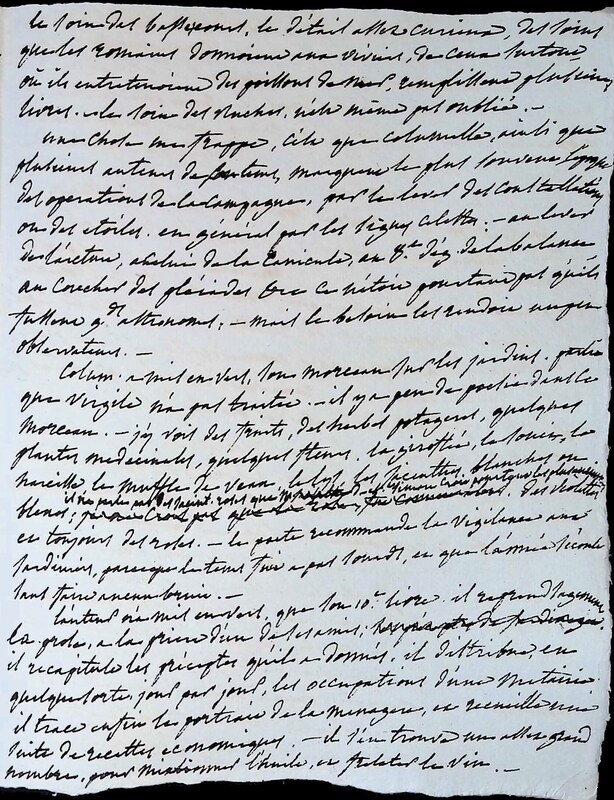 le soin des bassecours, le détail assez curieux, des soins
que les romains donnoient aux viviers, de ceux surtout
où ils entretenoient des poissons de mer, remplissent plusieurs
livres. le soin des ruches, n'est même pas oublié. —
une chose me frappe, c'est que columelle, ainsi que
plusieurs auteurs de marquent le plus souvent l'epoque
des operations de la campagne, par le lever des constellations
ou des etoiles. en général par les signes celestes. — au lever
de l'arcture, de la canicule, au 8.e dég. de la balance
au coucher des pleiades &c ce n'étoit pourtant pas qu'ils
fussent g.ds astronomes, — mais le besoin les rendoit un peu
observateurs. —
Colum. a mis en vers, son morceau sur les jardins. partie
que virgile n'a pas traitée. — il y a peu de poesie dans ce
morceau. — j'y vois des fruits, des herbes potageres, quelques
plantes medecinales, quelques fleurs. la giroflée, le souci, le
narcisse, le muffle de veau, le lys, les jacinthes, blanches ou
bleues, des violettes
et toujours des roses. — le poete recommande la vigilance aux
jardiniers, parceque le tems fuit a pas sourds, et que l'année s'écoule
sans faire aucun bruit. —
l'auteur n'a mis en vers, que son 10.e livre. il reprend sagement
la prose, a la priere d'un de ses amis,
il recapitule les préceptes qu'il a donnés. il distribue, en
quelque sorte, jour par jour, les occupations d'une metairie
il trace enfin le portrait de la menagere, et recueille une
suite de recettes economiques — il s'en trouve un assez grand
nombre, pour mixtionner l'huile, et frelater le vin. —